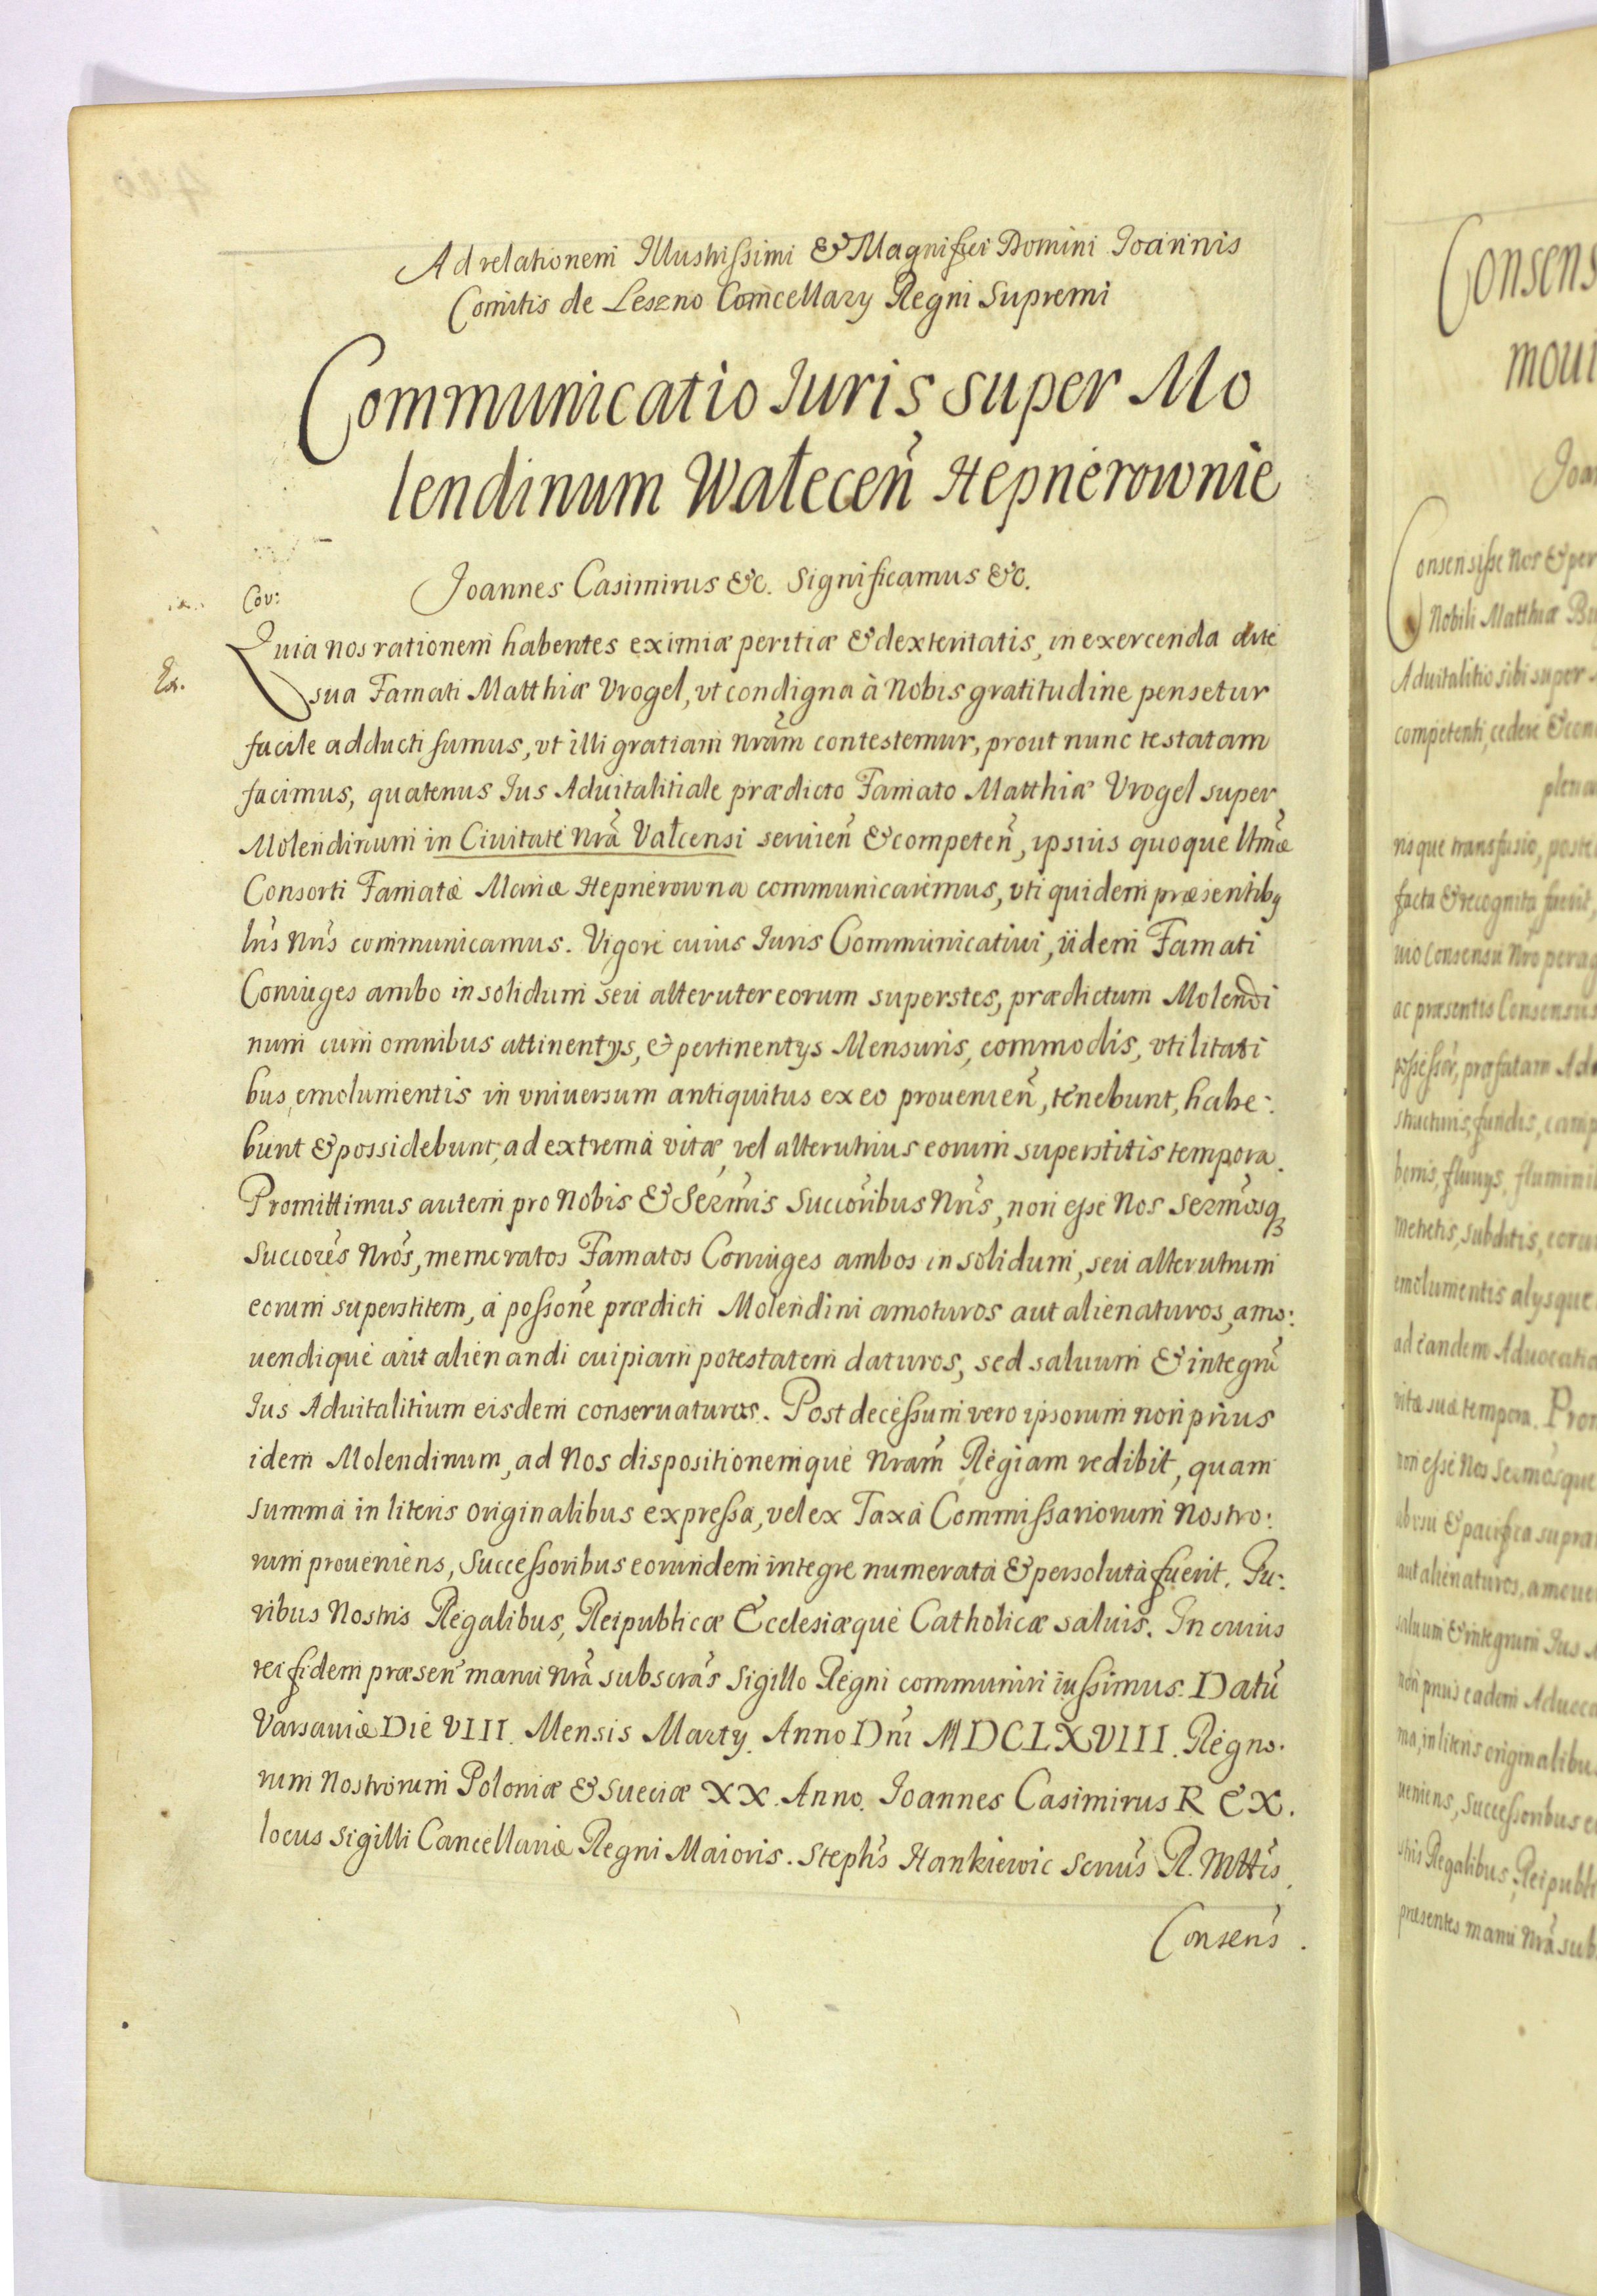 Ad relationem Illustrissimi & Magnifici Domini Joannis
Comitis de Leszno Comcellary Regni Supremi
Communicatio Iuris super Mo
lendinum Wałeceñ Hepnerownie
Joannes Casimirus &c. Significamus &c.
Cov:
Quia nos rationem habentes eximiæ peritiæ & dexteritatis, in exercenda arte
sua Famati Matthiæ Vrogel, vt condigna à Nobis gratitudine pensetur
facile adducti sumus, vt illi gratiam nrãm contestemur, prout nunc testatam
facimus, quatenus Ius Aduitalitiale prædicto Famato Matthiæ Vrogel super
Molendinum in Ciuitate nrã Valcensi seruieñ & competeñ, ipsius quoque ltmæ
Consorti Famatæ Mariæ Hepnerowna communicaremus, vti quidem præsentibq
lrĩs nrĩs communicamus. Vigore cuius Iuris Communicatiui, iidem Famati
Coniuges ambo in solidum seu alteruter eorum superstes, prædictum Molendi
num cum omnibus attinentys, & pertinentys Mensuris, commodis, vtilitati
bus, emolumentis in vniuersum antiquitus ex eo prouenieñ, tenebunt, habe:
bunt & possidebunt, ad extrema vitæ, vel alterutrius eorum superstitis tempora.
Promittimus autem pro Nobis & Sermĩs Succoribus Nrĩs, non esse Nos Sermõsq3
Succorẽs Nrõs, memoratos Famatos Coniuges ambos in solidum, seu alterutrum
eorum superstitem, à possone prædicti Molendini amoturos aut alienaturos, amo:
uendique aut alienandi cuipiam potestatem daturos, sed saluum & integrũ
Ius Aduitalitium eisdem conseruaturos. Post decessum vero ipsorum non prius
idem Molendinum, ad Nos dispositionemque Nram Regiam redibit, quam
summa in literis originalibus expressa, vel ex Taxa Commissariorum Nostro:
rum proueniens, Successoribus eorundem integre numerata & persoluta fuerit. Iu:
ribus Nostris Regalibus, Reipublicæ Ecclesiæque Catholicæ saluis. In cuius
rei fidem præseñ manu nrã subscrãs Sigillo Regni communiri iussimus. Datũ
Varsauiæ Die VIII. Mensis Marty. Anno Dni MDCLXVIII. Regno.
rum Nostrorum Poloniæ & Sueciæ XX. Anno. Joannes Casimirus REX.
locus Sigilli Cancellariæ Regni Maioris. Stephs Hankiewic Scrius R. Mttis.
Consens.
Consens
moui
Joan
Consensisse Nos & per
Nobili Matthiæ
Aduitalitio sibi super
competenti, cedere & con
plena
nisque transfusio, poste
facta & recognita fuerit,
uio Consensu Nro perag
ac præsentis Consensus
possessor, præfatam Ad
structuris, fundis, camp
bonis, fluuys, flumini
metictis, subditis, coru
emolumentis alysque
ad eandem Aduocatia
vitæ suæ tempora. Pro
non esse Nos Sermosque
ab vsu & pacifica supra
aut alienaturos, amoue
saluum & integrum Ius
non prius eadem Aduoca
ma, in literis originalibu
ueniens, Successoribus e
stris Regalibus, Reipubli
præsentes manu Nrã sub